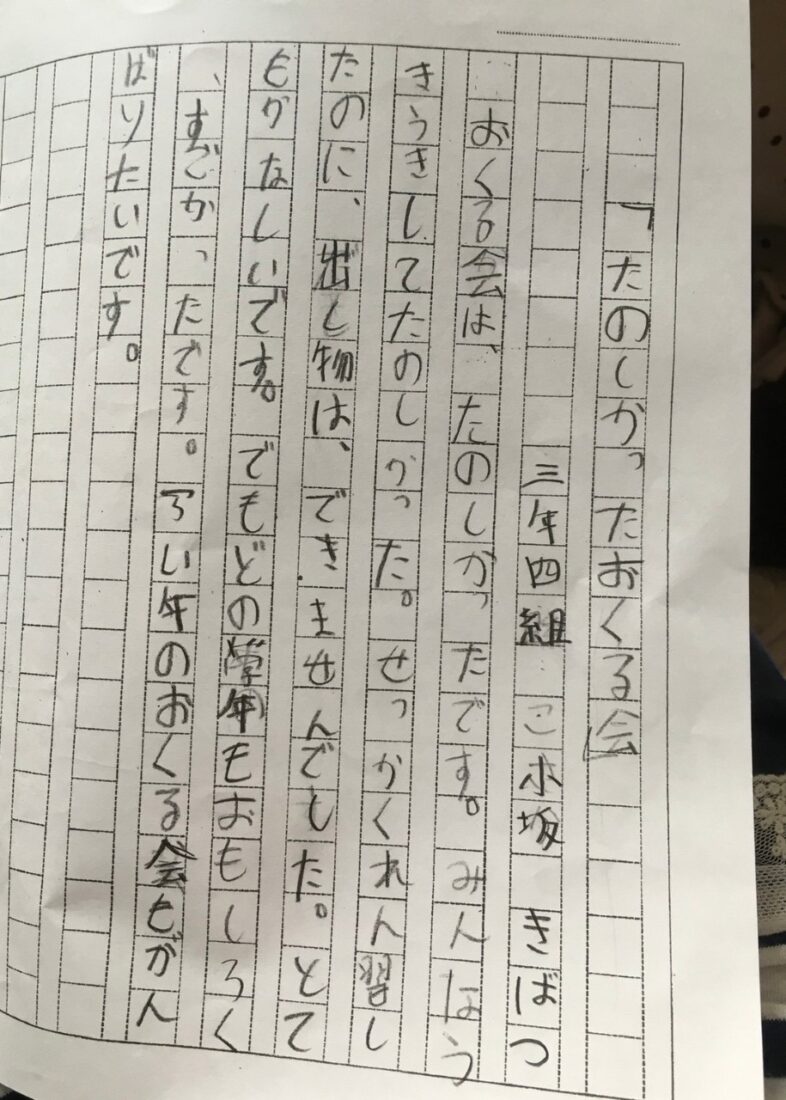 「たのしかったおくる会」
三年四組 こ木坂 きばつ
おくる会は、たのしかったです。みんなう
きうきしてたのしかった。せっかくれん習し
たのに、出し物は、できませんでした。とて
もかなしいです。でもどの学年もおもしろく
、すごかったです。らい年のおくる会もがん
ばりたいです。